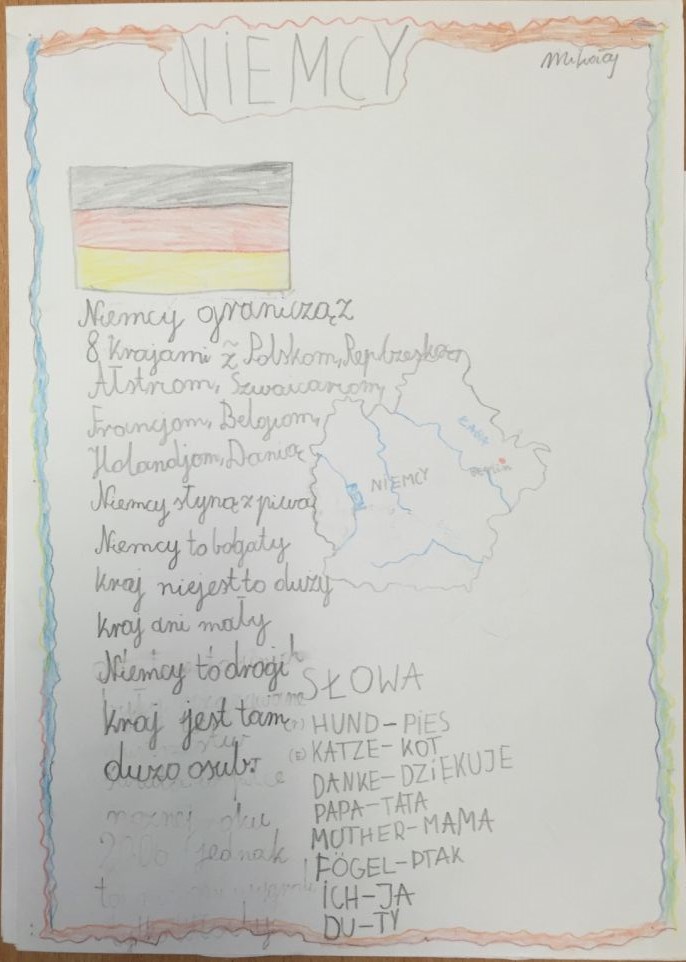 NiEMCY
Mikołaj
Niemcy graniczą z
8 Krajami z Polskom, Rep Czeskom
Ałstriom, Szwaicariom,
Francjom, Belgiom,
Holandjom, Danią
Niemcy słyną z piwa
Niemcy to bogaty
kraj niejest to duży
kraj ani mały
Niemcy to drogi
kraj jest tam
dużo osub.
ŁABA
Berlin
NIEMCY
SŁOWA
HUND-PiES
KATZE-KOT
DANKE-DZiĘKUJE
PAPA-TATA
MUTHER-MAMA
FÖGEL-PTAK
iCH-JA
DU-TY
jednak